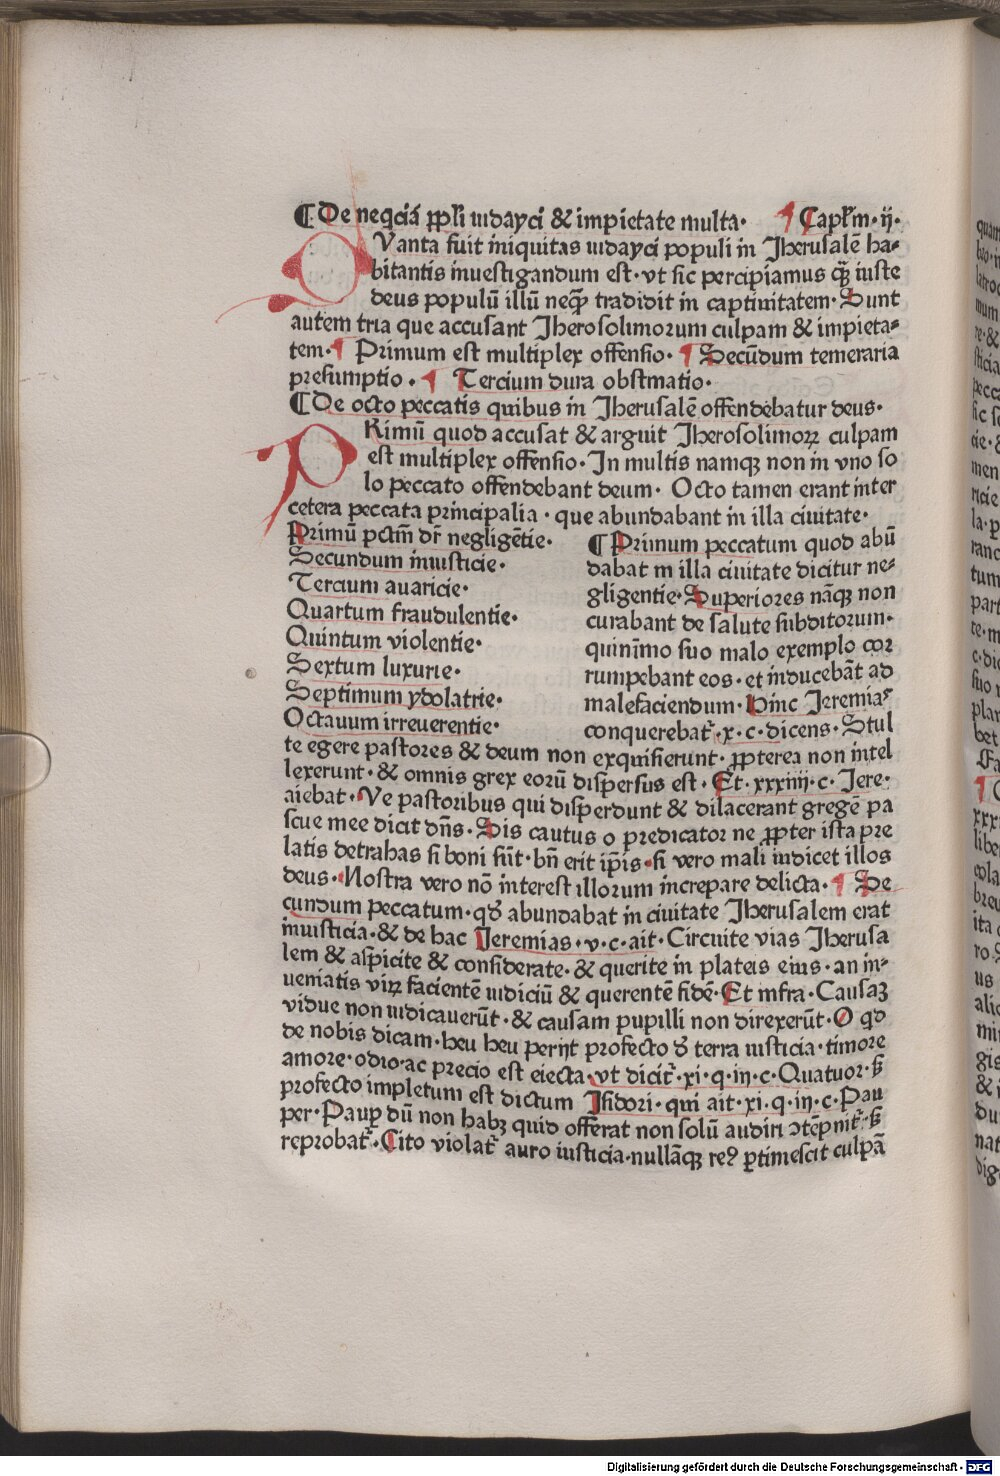 ¶ De neqciā ppl'i iudayci & impietate multa. ¶ Capl'm. ij.
QVanta fuit iniquitas iudayci populi in Jherusalē ha-
bitantis inuestigandum est. vt sic percipiamus q̄ iuste
deus populū illū neqꝫ tradidit in captiuitatem. Sunt
autem tria que accusant Jherosolimorum culpam & impieta-
tem. ¶ Primum est multiplex offensio. ¶ Secūdum temeraria
presumptio. ¶ Tercium dura obstinatio.
¶ De octo peccatis quibus in Jherusalē offendebatur deus.
PRimū quod accusat & arguit Jherosolimoꝝ culpam
est multiplex offensio. In multis namqꝫ non in vno so
lo peccato offendebant deum. Octo tamen erant inter
cetera peccata principalia. que abundabant in illa ciuitate.
Primū pctm̄ dr̄ negligētie.
Secundum iniusticie.
Tercium auaricie.
Quartum fraudulentie.
Quintum violentie.
Sextum luxurie.
Septimum ydolatrie.
Octauum irreuerentie.
¶ Primum peccatum quod abū
dabat in illa ciuitate dicitur ne-
gligentie. Superiores nāqꝫ non
curabant de salute subditorum.
quinīmo suo malo exemplo cor
rumpebant eos. et inducebāt ad
malefaciendum. Hinc Jeremias
conquerebat᷑. x. c. dicens. Stul
te egere pastores & deum non exquisierunt. ꝓpterea non intel
lexerunt. & omnis grex eorū dispersus est. Et. xxxiiij. c. Jere.
aiebat. Ve pastoribus qui disperdunt & dilacerant gregē pa
scue mee dicit dn̄s. Sis cautus o predicator ne ꝓpter ista pre
latis detrahas si boni sūt. bn̄ erit ip̄is. si vero mali iudicet illos
deus. Nostra vero nō interest illorum increpare delicta. ¶ Se
cundum peccatum. qd' abundabat in ciuitate Jherusalem erat
iniusticia. & de hac Jeremias. v. c. ait. Circuite vias Jherusa
lem & aspicite & considerate. & querite in plateis eius. an in-
ueniatis viꝝ facientē iudiciū & querentē fidē. Et infra. Causaꝫ
vidue non iudicauerūt. & causam pupilli non direxerūt. O qd
de nobis dicam. heu heu perijt profecto d' terra iusticia. timore
amore. odio. ac precio est eiecta. vt dicit᷑. xi. q. iij. c. Quatuor. s'
profecto impletum est dictum Isidori. qui ait. xi. q. iij. c. Pau
per. Paup dū non habꝫ quid offerat non solū audiri ↄtēpnit᷑. s'
reprobat᷑. Cito violat᷑ auro iusticia. nullāqꝫ re⁹ ꝑtimescit culpā
Digitalisierung gefördert durch die Deutsche Forschungsgemeinschaft - DFG